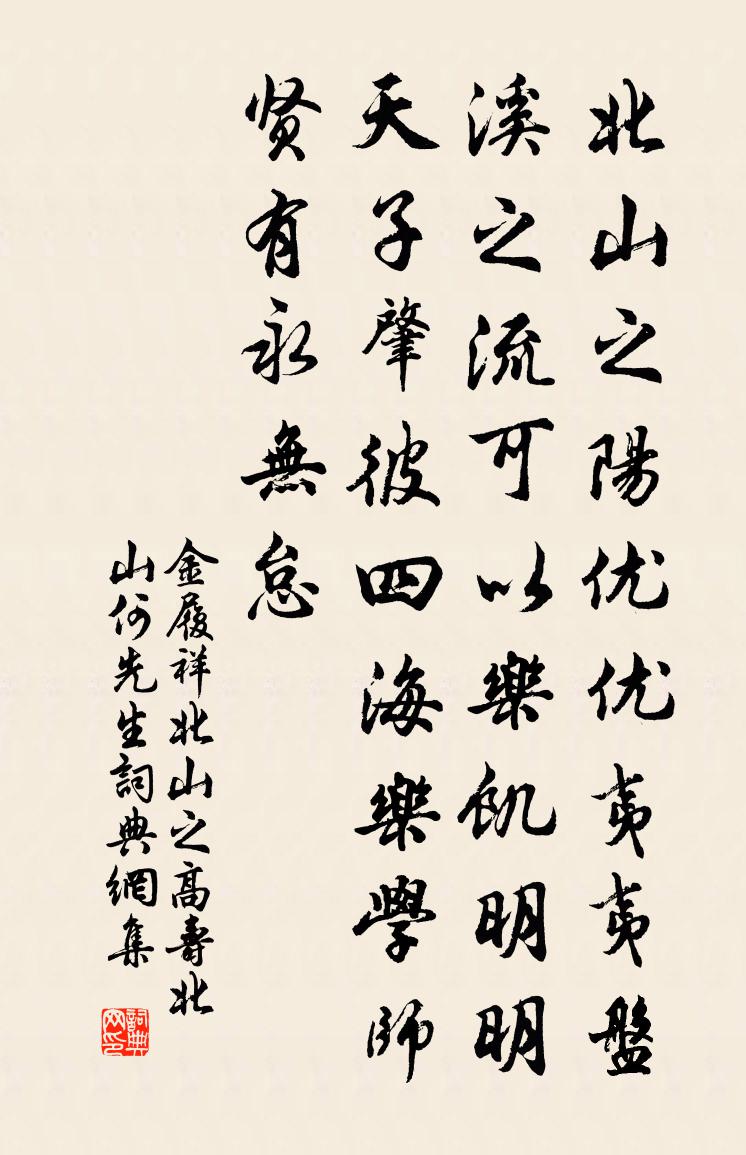 北山之陽优优夷夷盤
溪之流可以樂飢明明
天子肇彼四海樂學師
贤有永無怠
金履祥北山之高壽北
山何先生詞典網集
詞典
网印